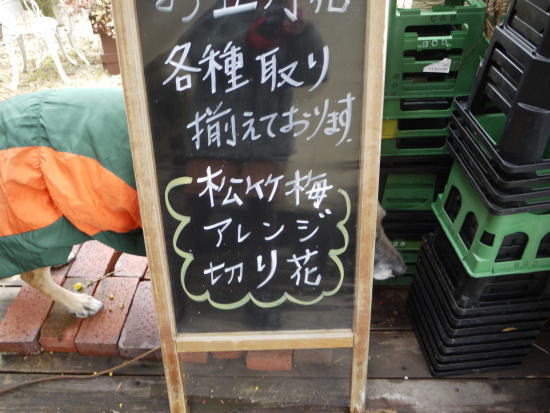 お正月花
各種取り
揃えております
松竹梅
アレンジ
切り花